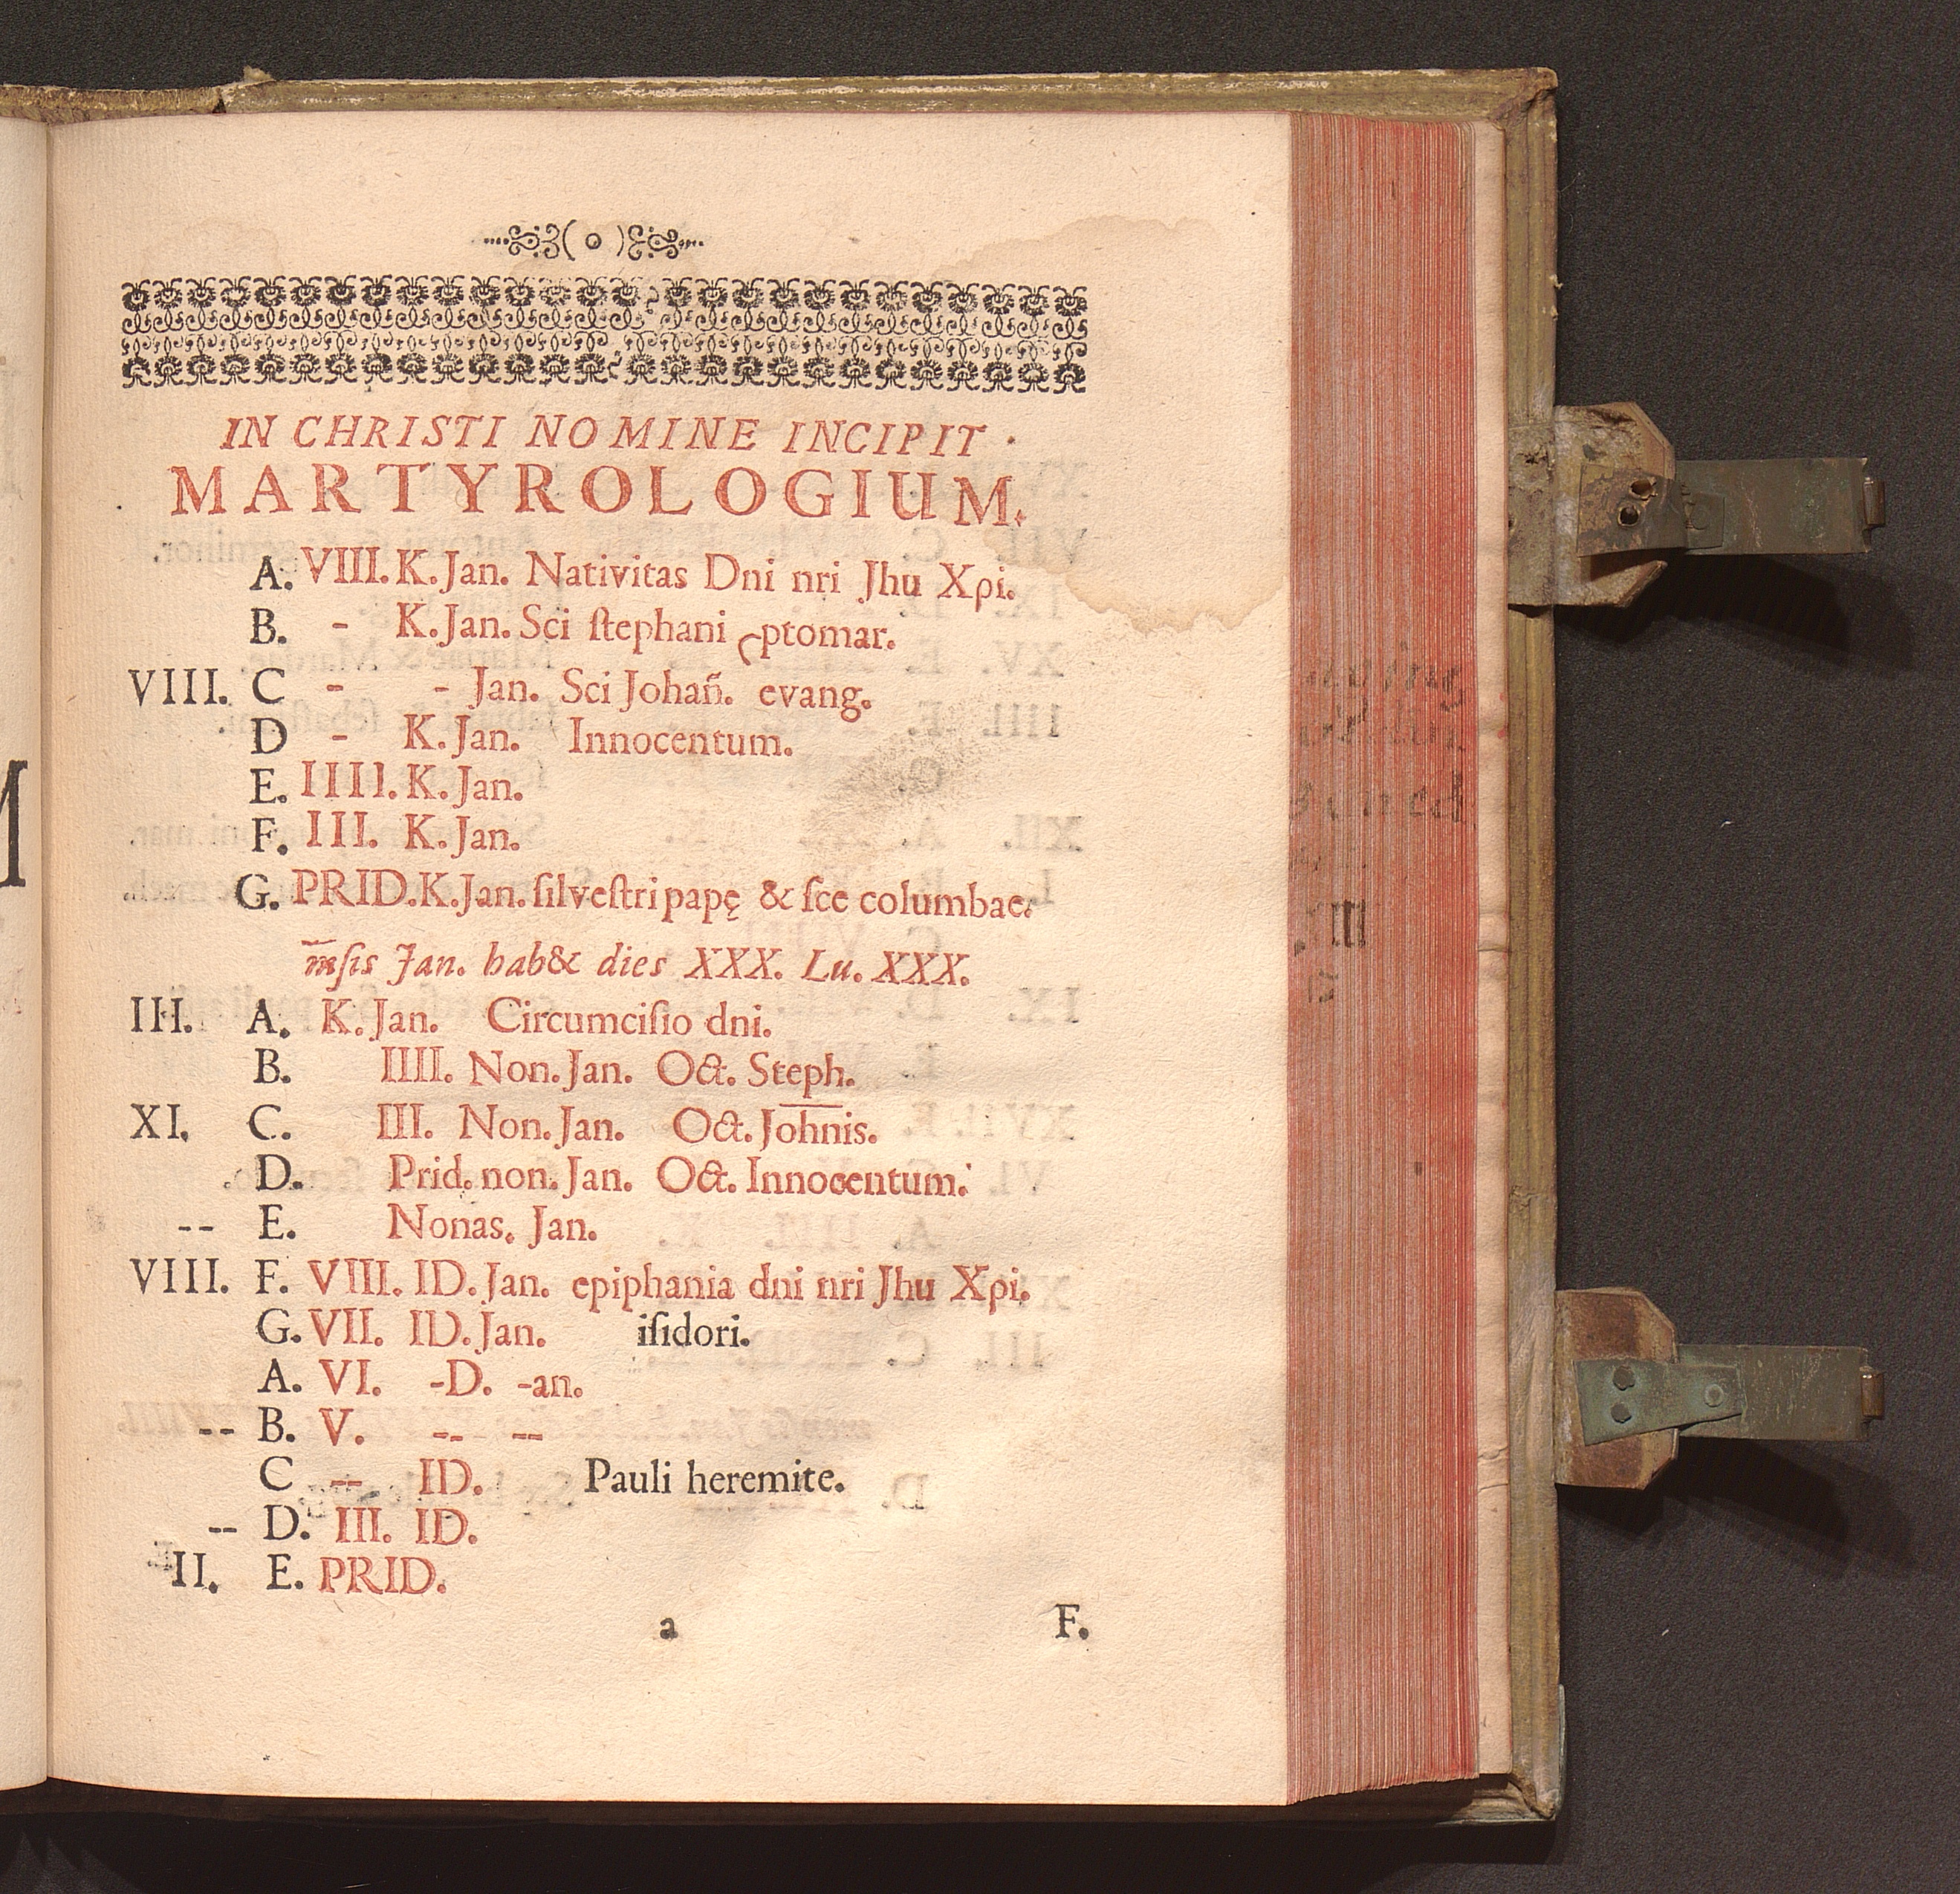 IN CHRISTI NOMINE INCIPIT.
MARTYROLOGIUM.
A. VIII. K. Jan. Nativitas Dni nri Jhu Xρi.
B. - K. Jan. Sci ſtephani ptomar.
VIII. C - - Jan. Sci Johañ. evang.
D - K. Jan. Innocentum.
E. IIII. K. Jan.
F. III. K. Jan.
G. PRID. K. Jan. ſilveſtri papę & ſce columbae.
m̅ſis Jan. hab& dies XXX. Lu. XXX.
III. A. K. Jan. Circumciſio dni.
B. IIII. Non. Jan. Oct. Steph.
XI. C. III. Non. Jan. Oct. Jo̅h̅nis.
D. Prid. non. Jan. Oct. Innocentum.
-- E. Nonas. Jan.
VIII. F. VIII. ID. Jan. epiphania dni nri Jhu Xρi.
G. VII. ID. Jan. iſidori.
A. VI. -D. -an.
-- B. V. -- --
C -- ID. Pauli heremite.
-- D. III. ID.
II. E. PRID.
a F.